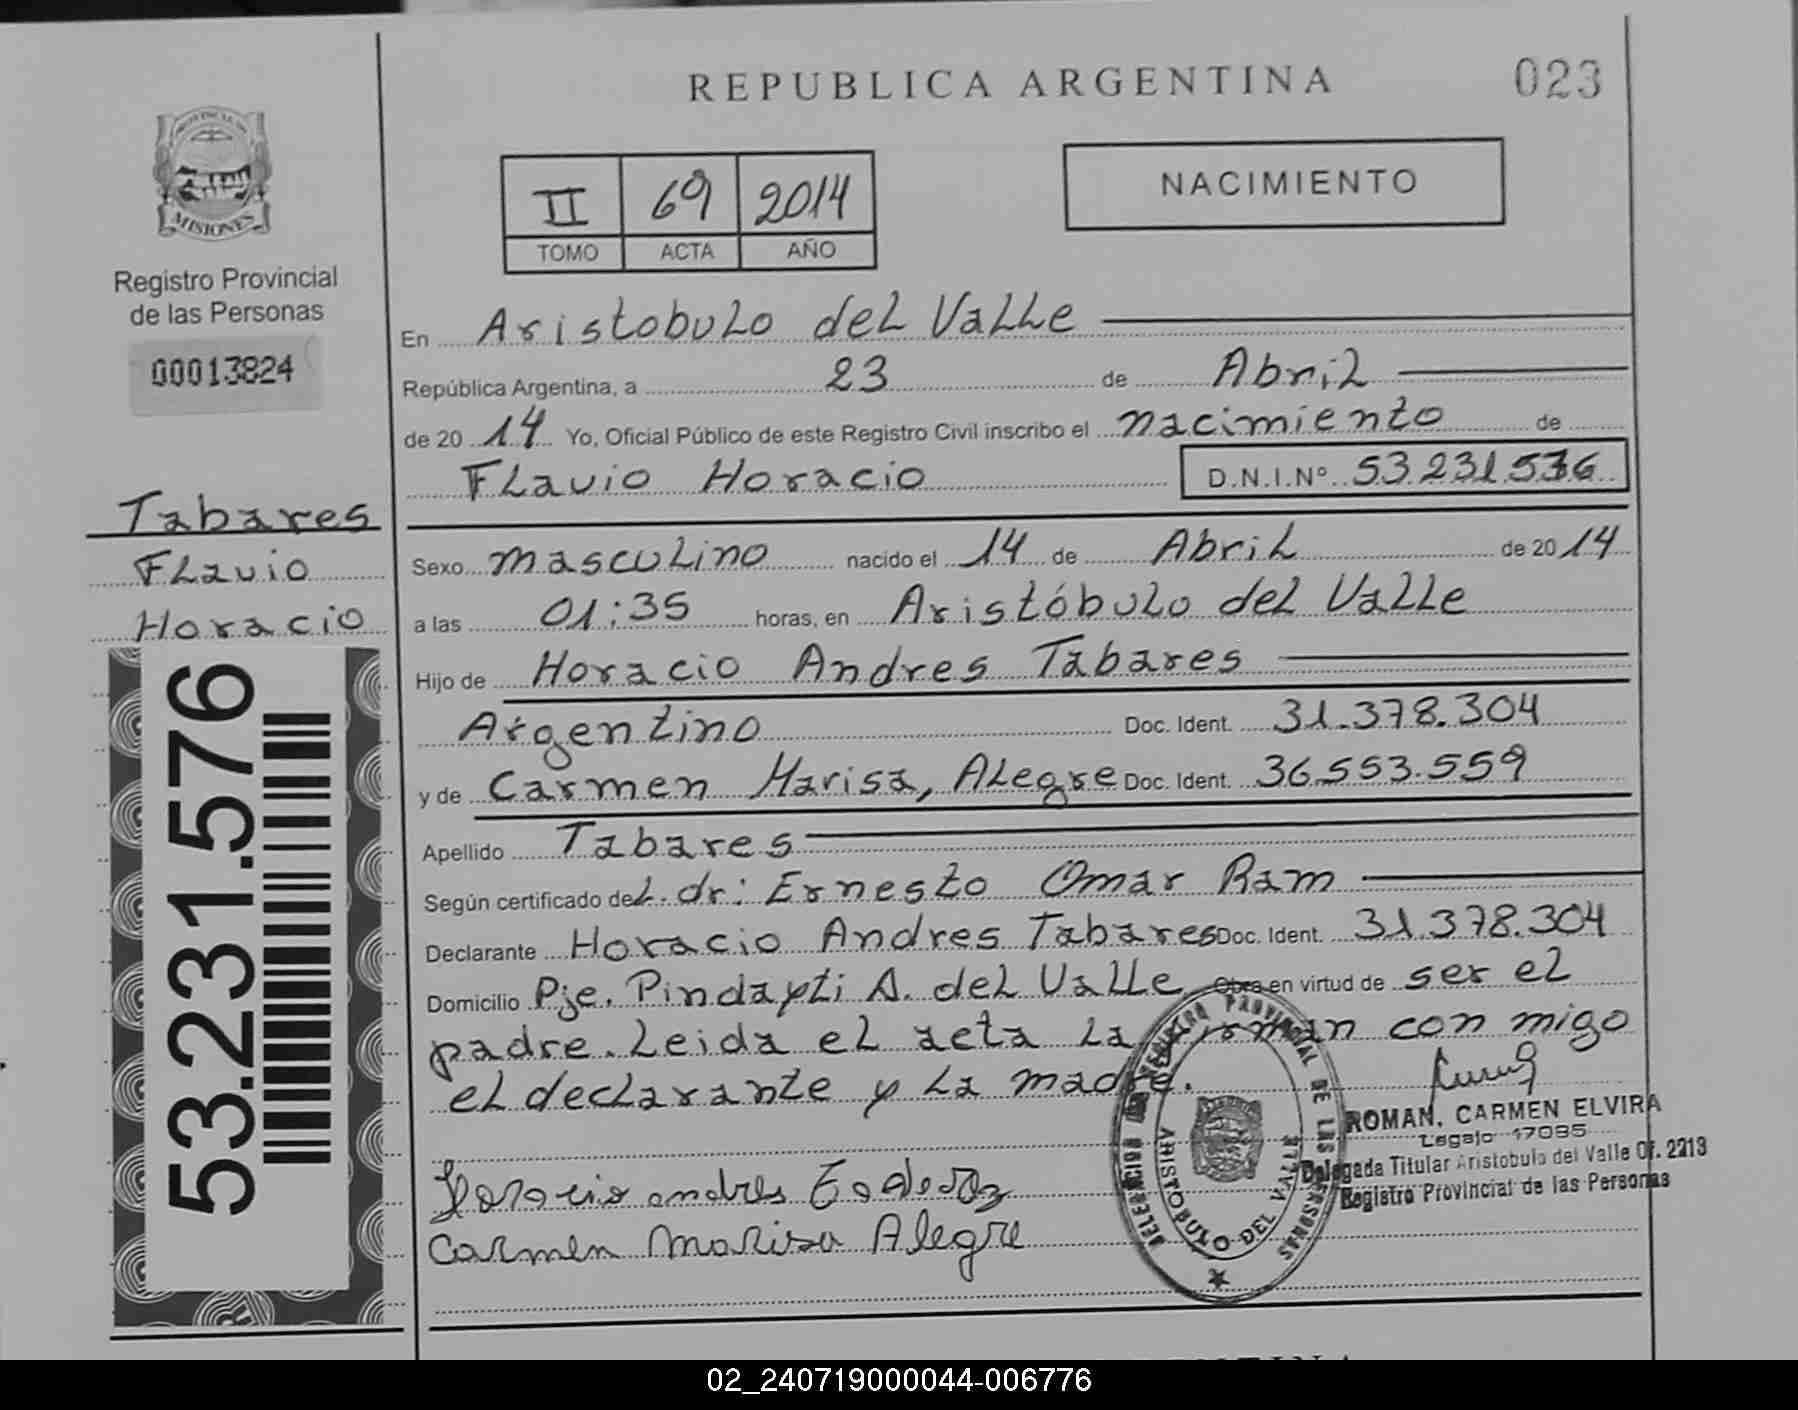 REPUBLICA ARGENTINA
023
PROVINCIA DE
MISIONES
Registro Provincial
de las Personas
00013824
II 69 2014
TOMO ACTA AÑO
NACIMIENTO
En Aristobulo del Valle
República Argentina, a 23 de Abril
de 20 14 Yo, Oficial Público de este Registro Civil inscribo el nacimiento de
Flavio Horacio D.N.I.Nº 53.231.576
Tabares
Flavio
Horacio
53.231.576
Sexo masculino nacido el 14 de Abril de 20 14
a las 01:35 horas, en Aristóbulo del Valle
Hijo de Horacio Andres Tabares
Argentino Doc. Ident. 31.378.304
y de Carmen Marisa, Alegre Doc. Ident. 36.553.559
Apellido Tabares
Según certificado del. dr: Ernesto Omar Ram
Declarante Horacio Andres Tabares Doc. Ident. 31.378.304
Domicilio Pje. Pindayti A. del Valle Obra en virtud de ser el
padre. Leida el acta la firman con migo
el declarante y la madre.
ROMAN, CARMEN ELVIRA
Legajo 17095
Delegada Titular Aristobulo del Valle Of. 2213
Registro Provincial de las Personas
REGISTRO PROVINCIAL DE LAS PERSONAS
ARISTOBULO DEL VALLE
Carmen Marisa Alegre
02_240719000044-006776